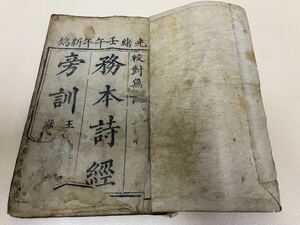 光緒壬午年新鐫
校對無訛
務本詩經
旁訓
王